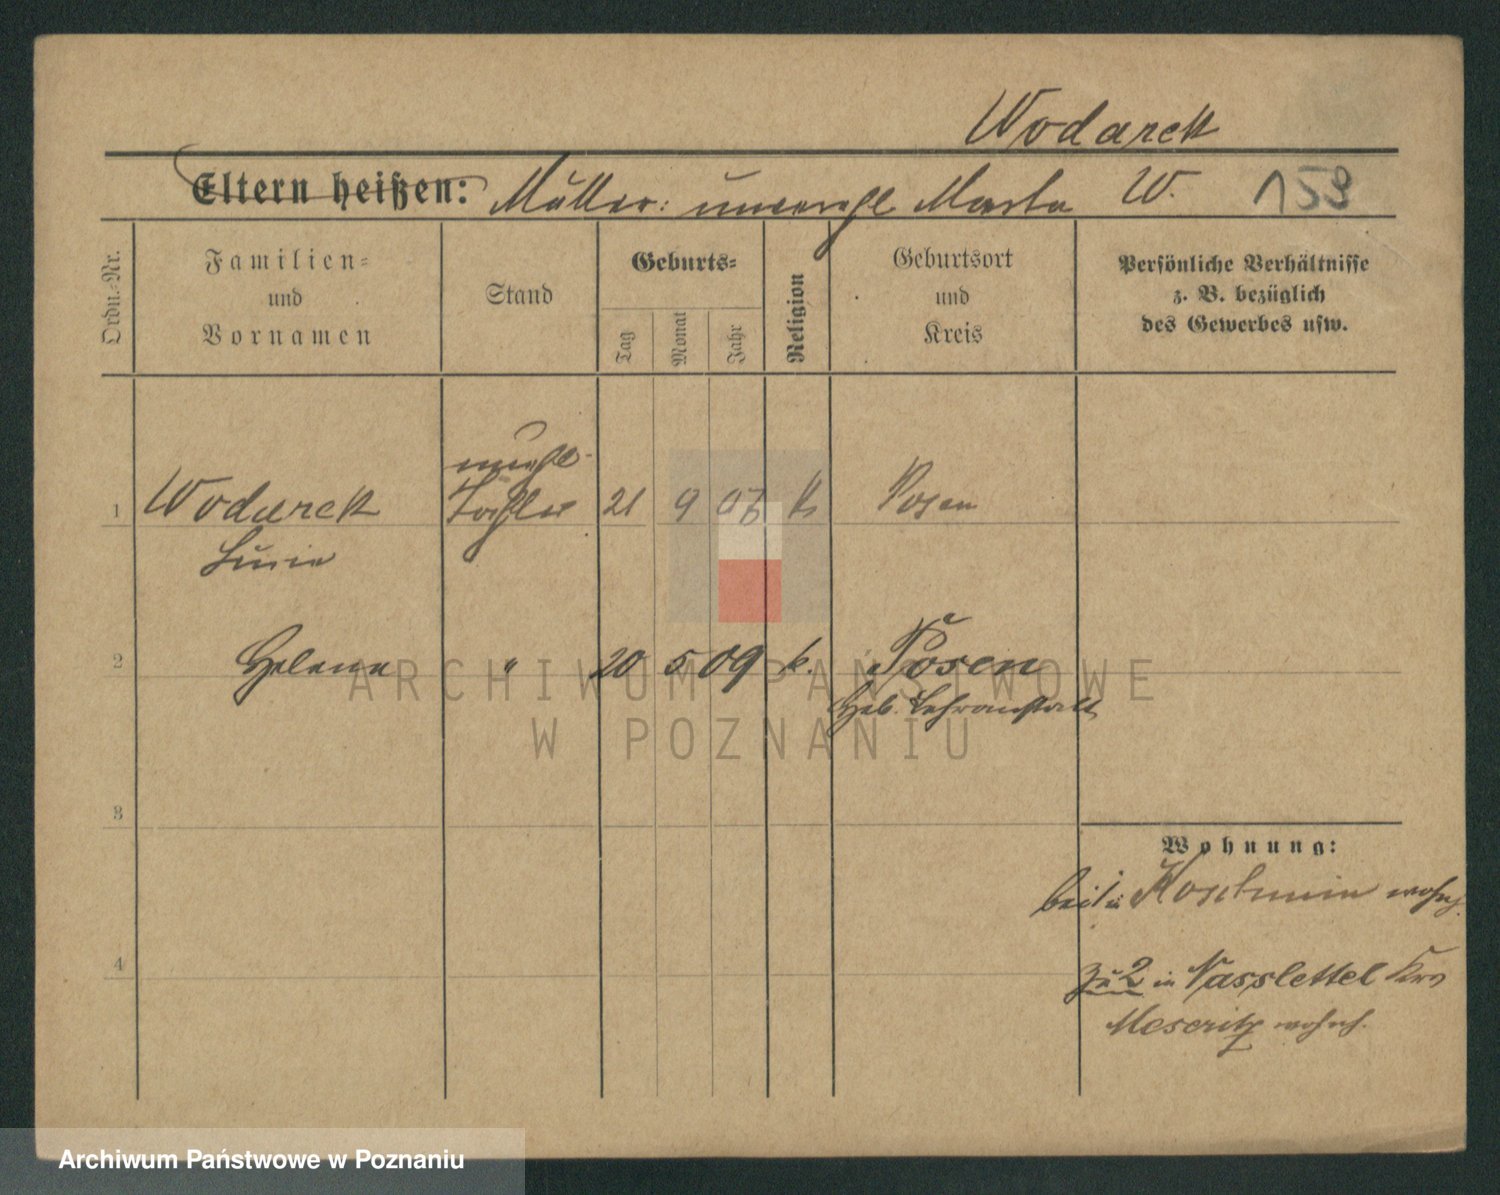 Wodarck
Eltern heißen: Mutter: unverehl Marta W. 153
Ordn.-Nr.
Familien-
und
Vornamen
Stand
Geburts-
Tag
Monat
Jahr
Religion
Geburtsort
und
Kreis
Persönliche Verhältnisse
z. B. bezüglich
des Gewerbes usw.
unehl.
1 Wodarck Tochter 21 9 07 k Posen
2 Helene " 20 5 09 k. Posen
Heb. Lehranstalt
3
Wohnung:
Koschmin wohnh.
4
zu 2 in Nasslettel Krs
Meseritz wohnh.
ARCHIWUM PAŃSTWOWE
W POZNANIU
Archiwum Państwowe w Poznaniu